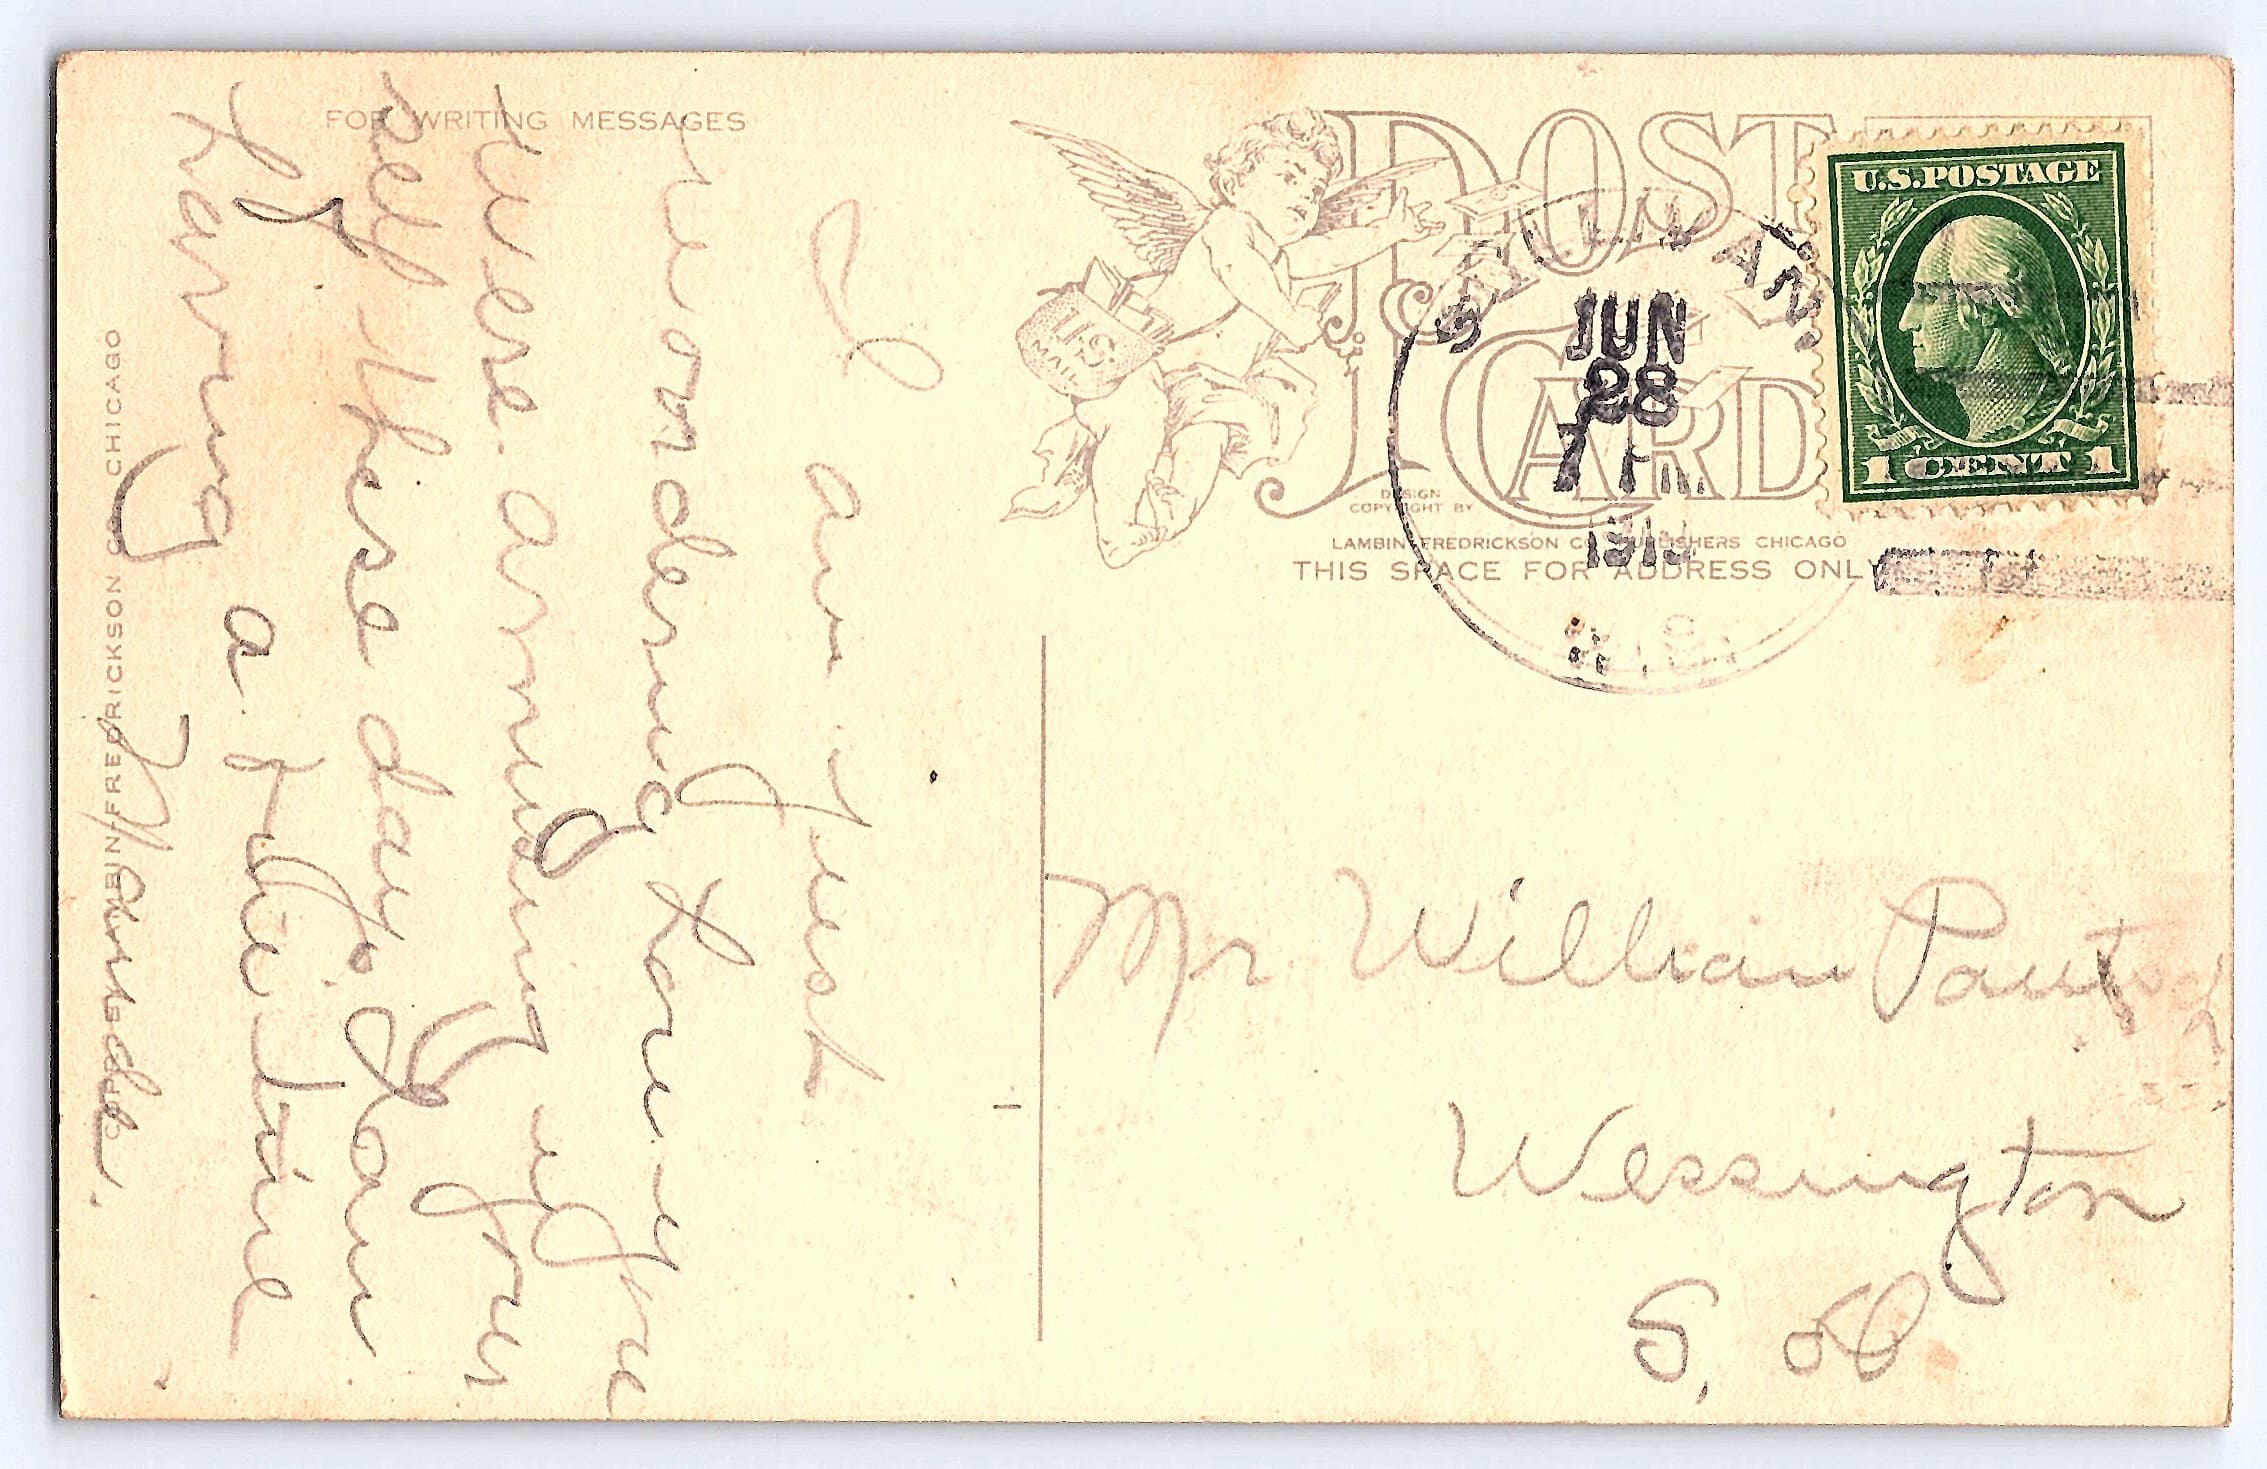 FOR WRITING MESSAGES
I am just
wondering how you
were. amusing your
self these days I am
having a fine time
POST
CARD
U.S.
MAIL
DESIGN
COPYRIGHT BY
LAMBIN-FREDRICKSON CO PUBLISHERS CHICAGO
THIS SPACE FOR ADDRESS ONLY
JUN
28
7
U.S. POSTAGE
1 CENT 1
Mr William
Wessington
S,
LAMBIN-FREDRICKSON CO CHICAGO